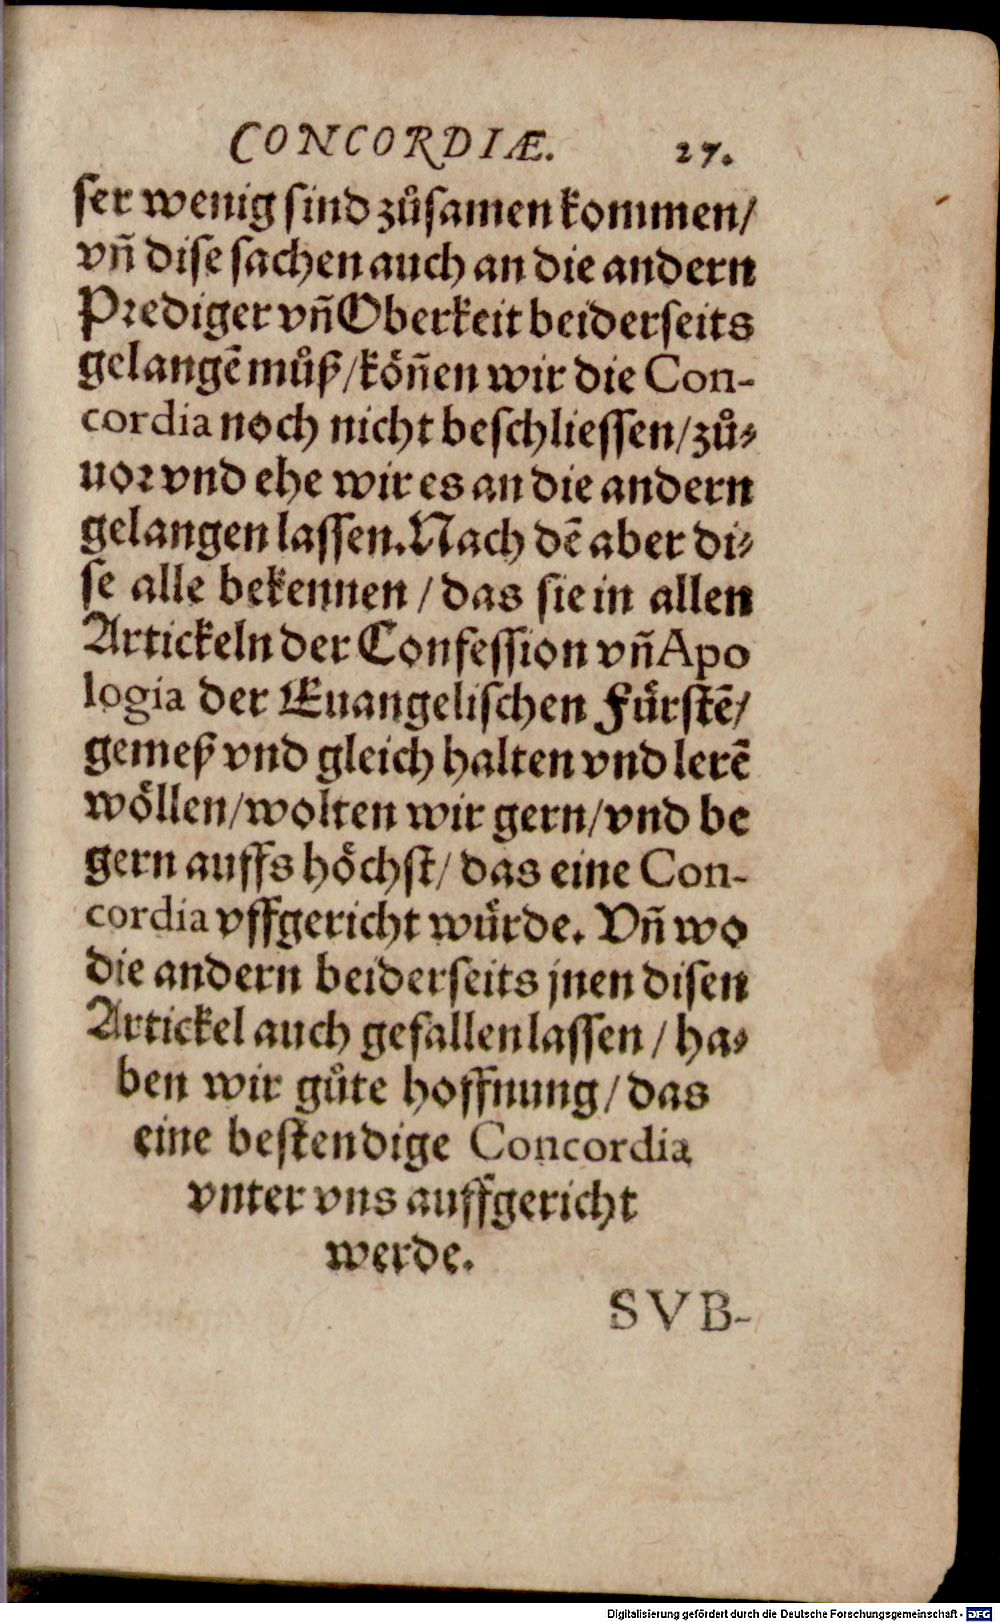 CONCORDIÆ. 27.
ser wenig sind zůsamen kommen/
vñ dise sachen auch an die andern
Prediger vñ Oberkeit beiderseits
gelangē můß/köñen wir die Con-
cordia noch nicht beschliessen/zů-
uor vnd ehe wir es an die andern
gelangen lassen. Nach dē aber di-
se alle bekennen / das sie in allen
Artickeln der Confession vñ Apo
logia der Euangelischen Fürstē/
gemeß vnd gleich halten vnd lerē
wöllen/wolten wir gern/vnd be
gern auffs höchst/ das eine Con-
cordia vffgericht würde. Vñ wo
die andern beiderseits jnen disen
Artickel auch gefallen lassen / ha-
ben wir gůte hoffnung/ das
eine bestendige Concordia
vnter vns auffgericht
werde.
SVB-
Digitalisierung gefördert durch die Deutsche Forschungsgemeinschaft - DFG